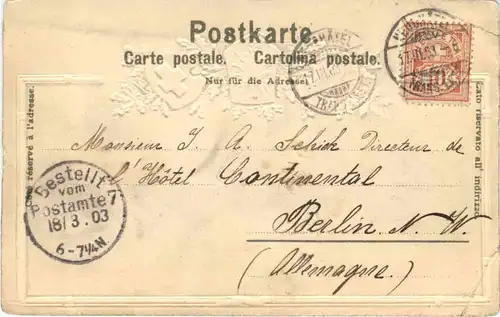 Postkarte.
Carte postale. Cartolina postale.
Nur für die Adresse.
Côté réservé à l'adresse.
Lato riservato all' indirizzo.
Monsieur J. A. Schick Directeur de
l'Hôtel Continental
Berlin N. W.
(Allemagne)
Bestellt
vom
Postamte 7
18/3.03
6-7¼N